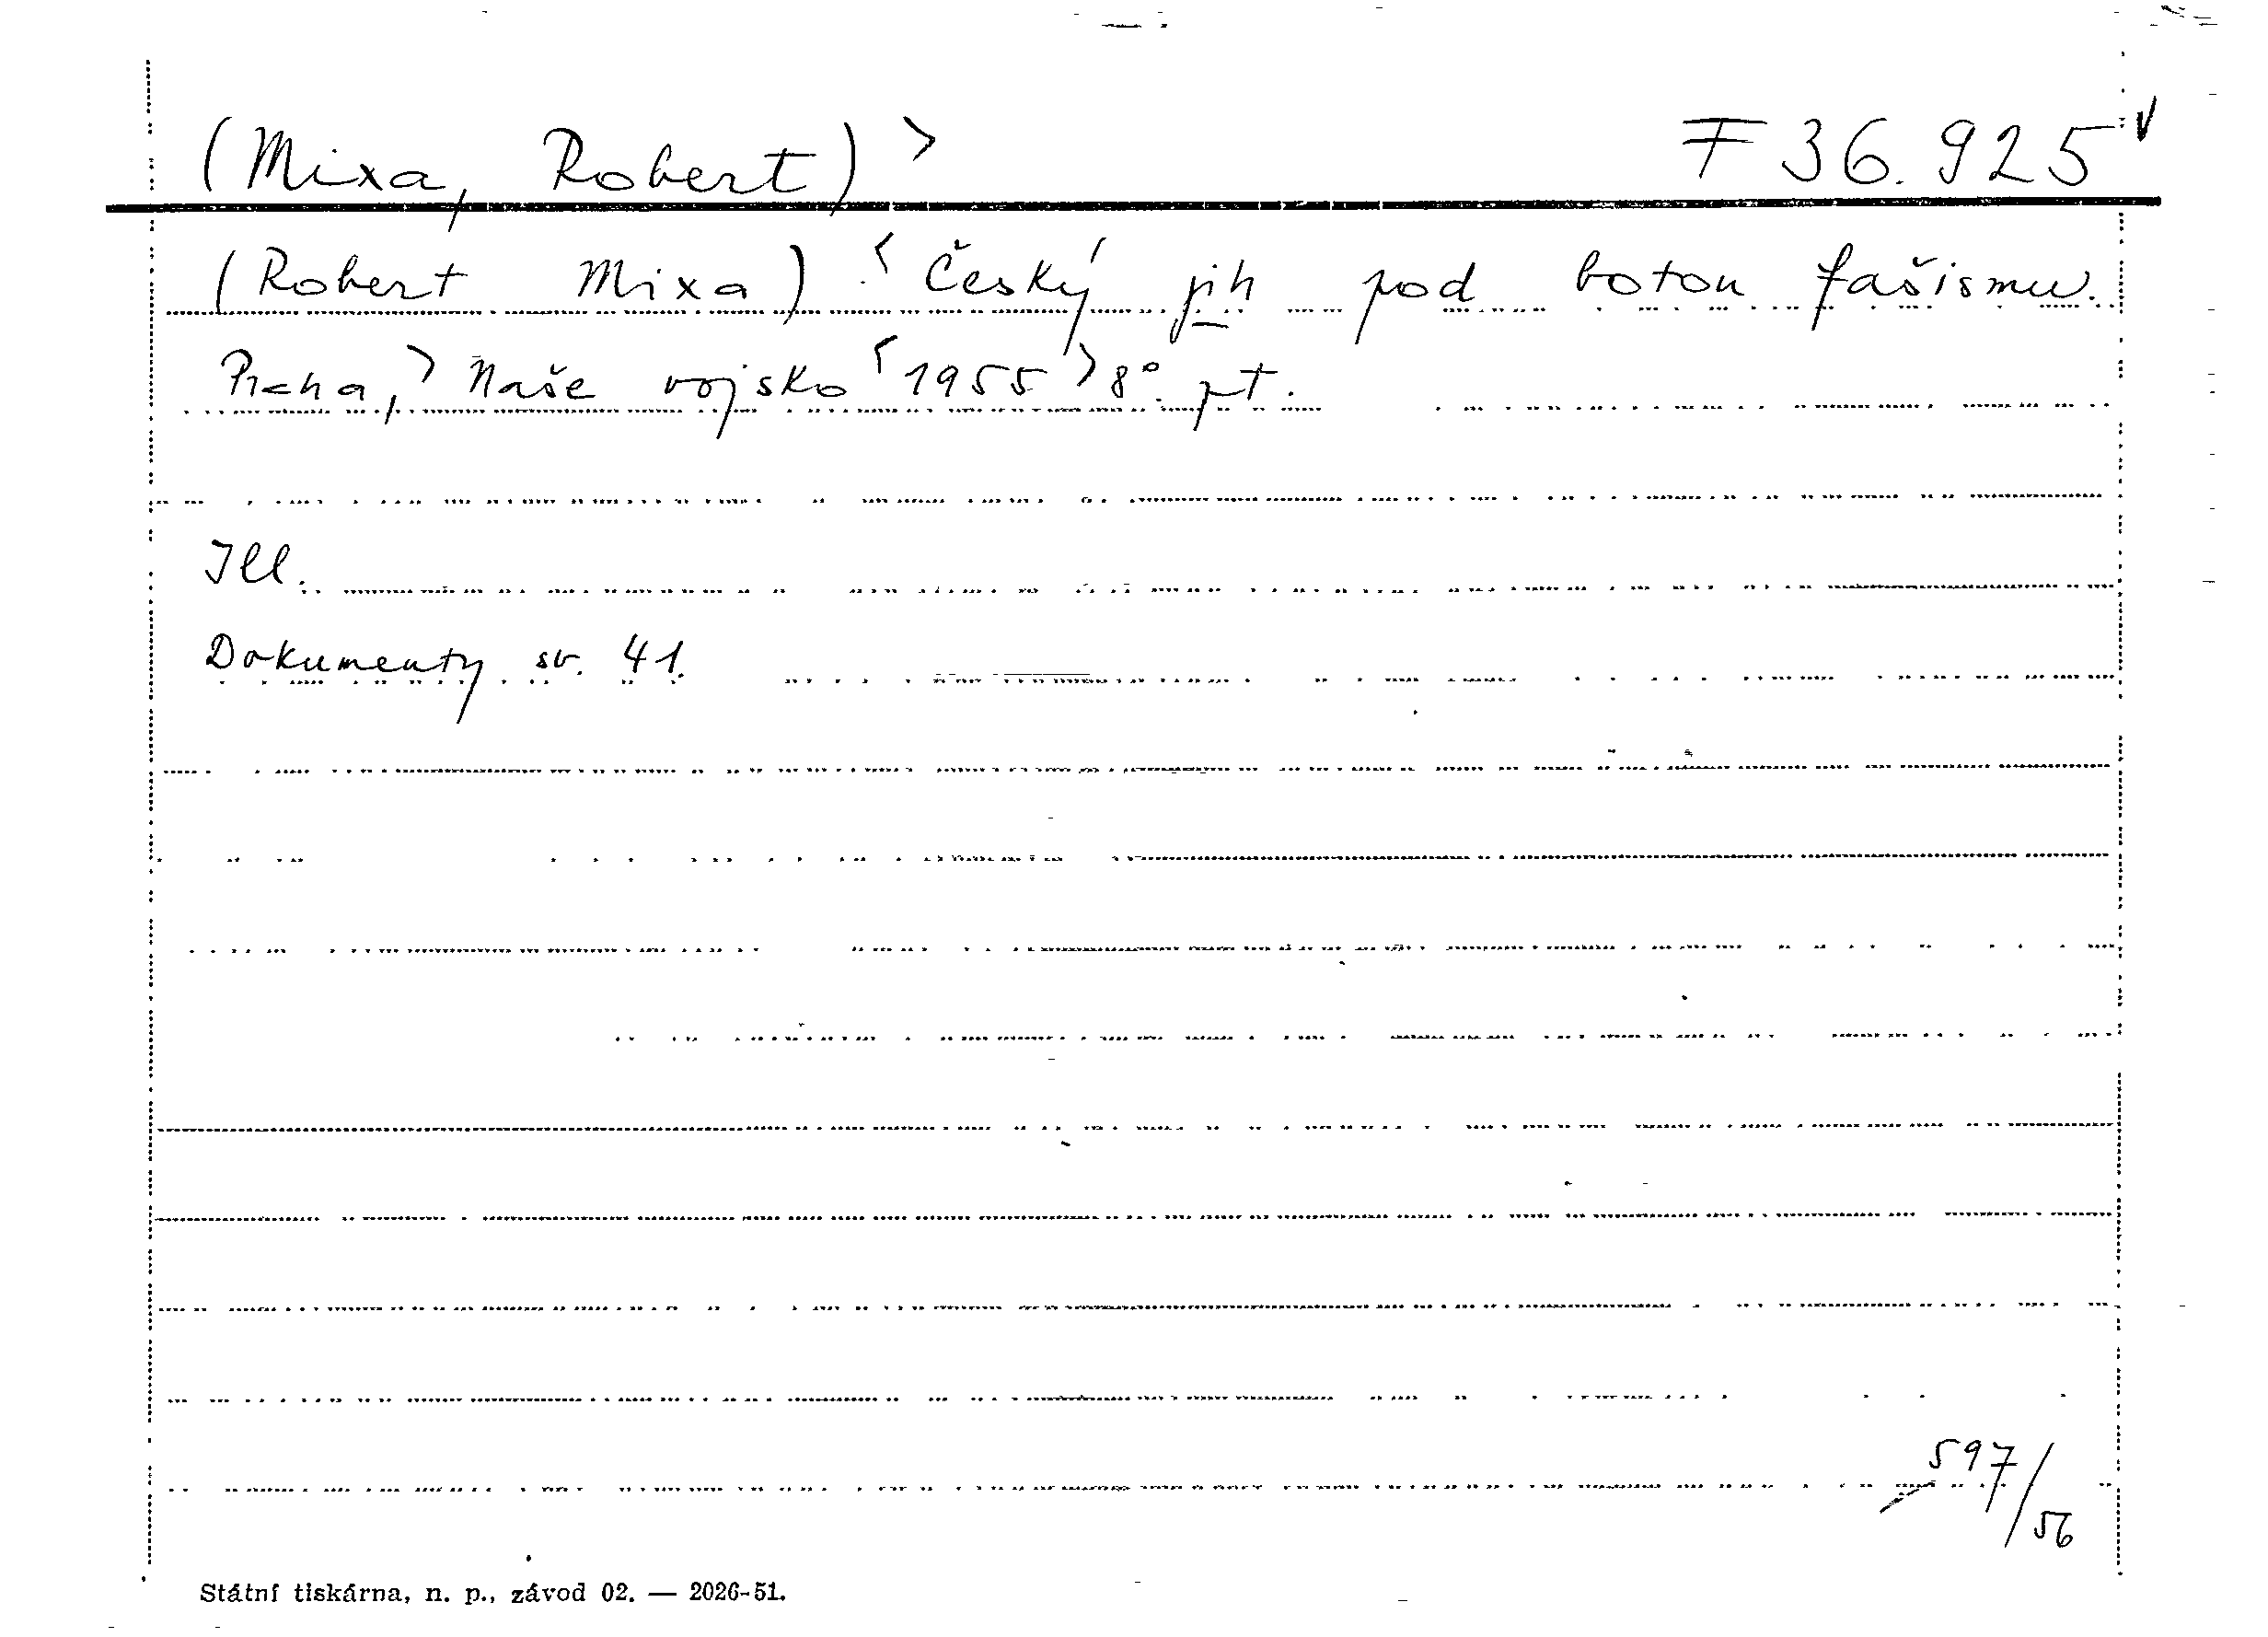 (Mixa, Robert) > F 36.925
(Robert Mixa) < Český jih pod botou fašismu.
Praha, > Naše vojsko < 1955 > 8° pt.
Ill.
Dokumenty sv. 41.
597/56
Státní tiskárna, n. p., závod 02. — 2026-51.